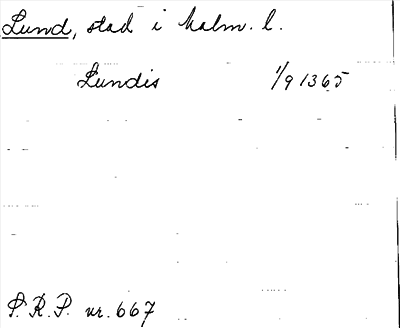 Lund, stad i Malm. l.
Lundis 1/9 1365
P. R. P. nr. 667